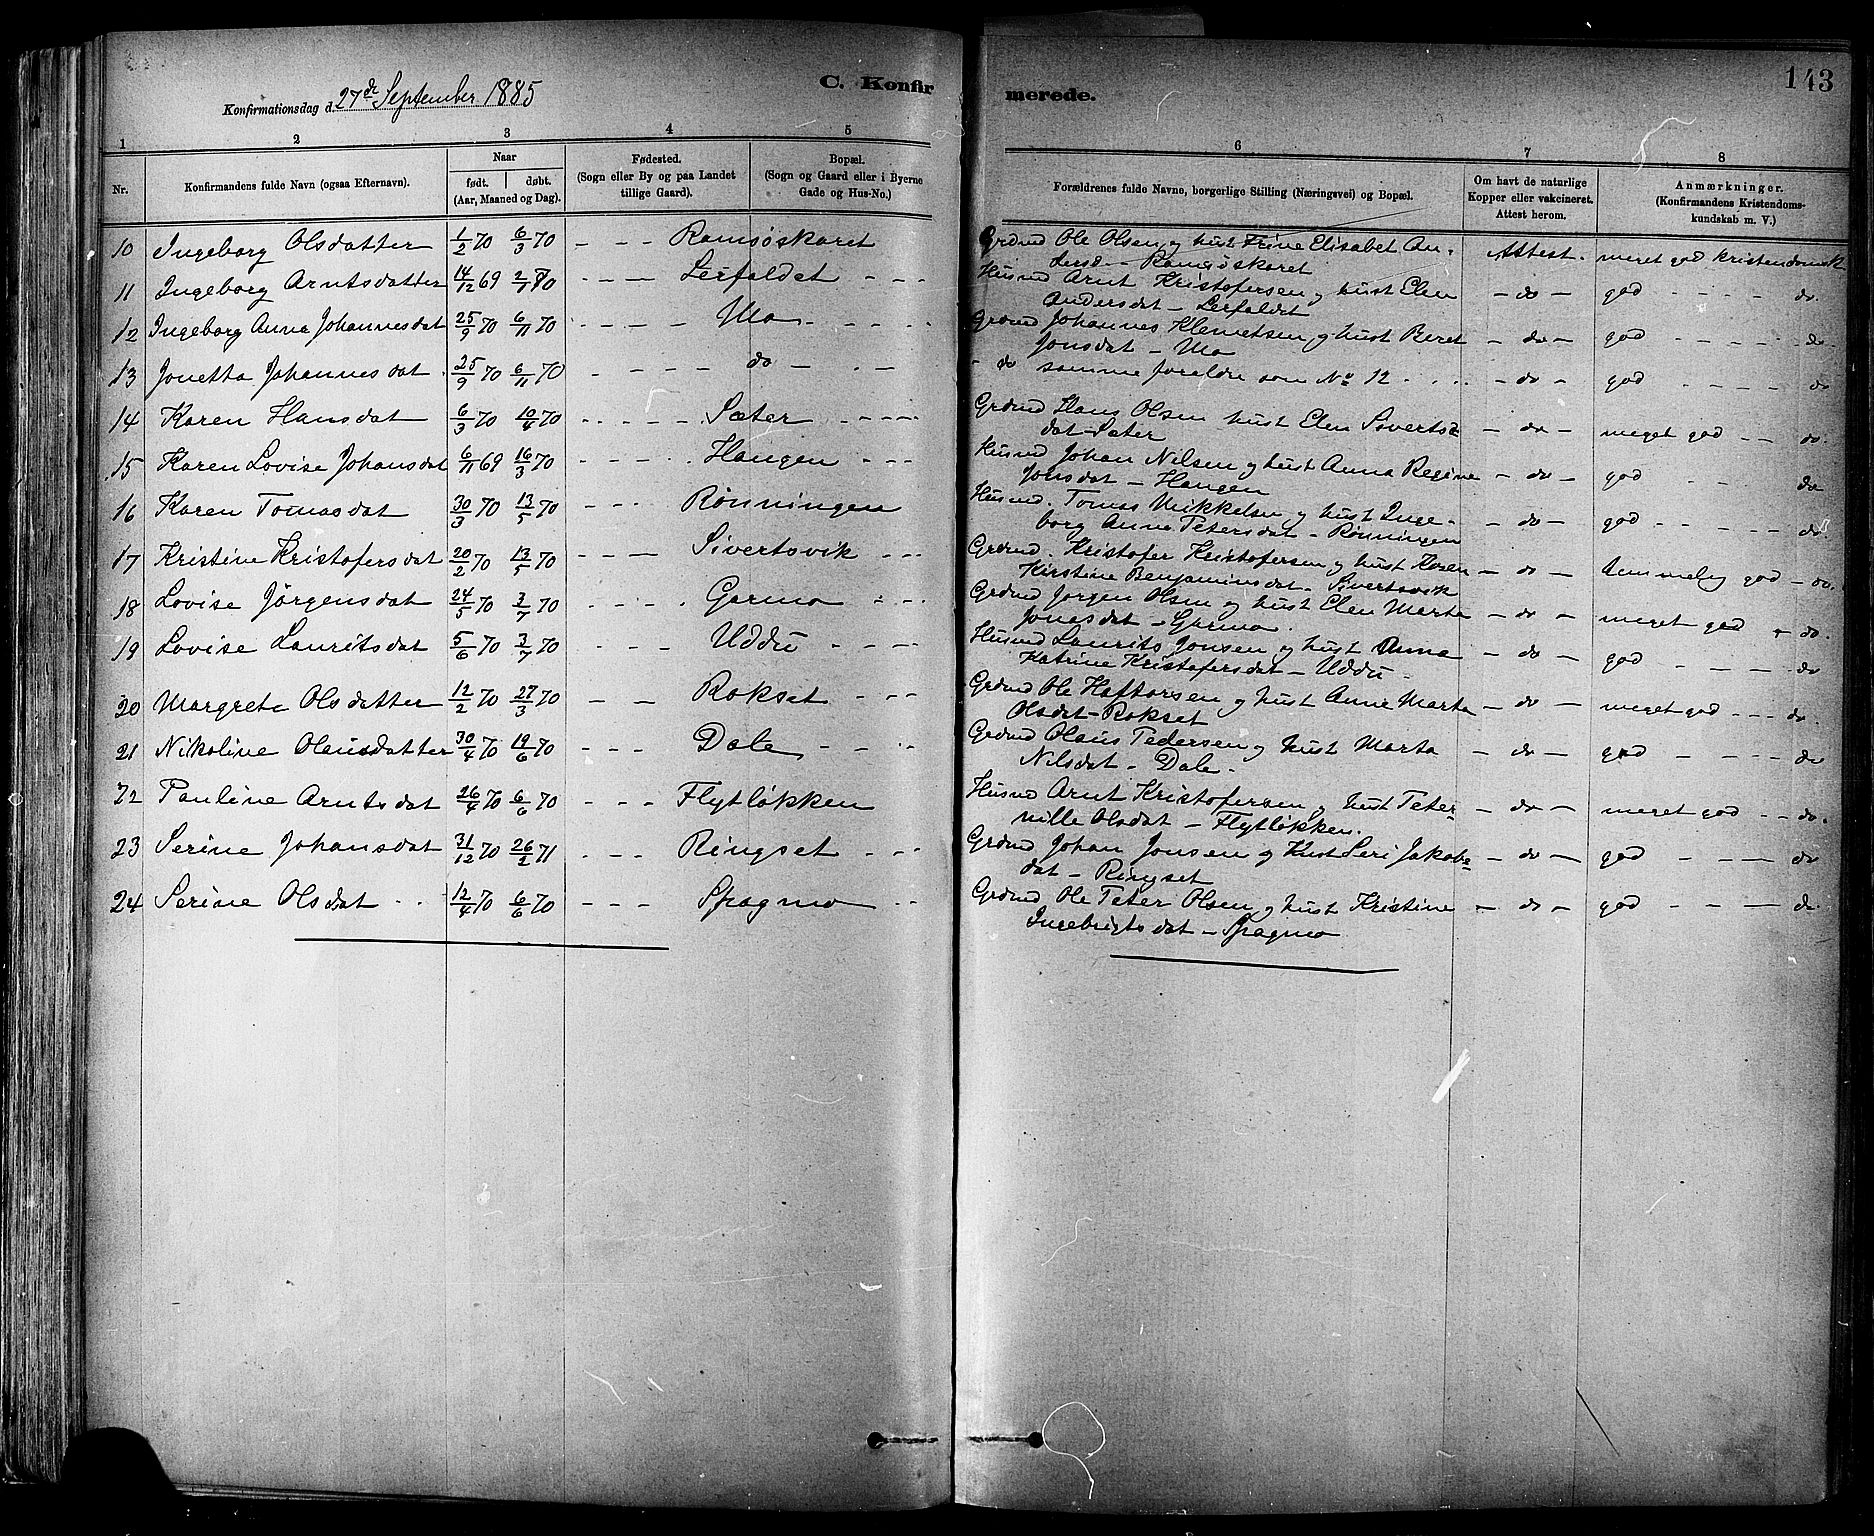 Konfirmationsdag d. 27de September 1885
C. Konfirmerede.
143
1 2 3 4 5 6 7 8
Nr.
Konfirmandens fulde Navn (ogsaa Efternavn).
Naar
født. døbt.
(Aar, Maaned og Dag).
Fødested.
(Sogn eller By og paa Landet
tillige Gaard).
Bopæl.
(Sogn og Gaard eller i Byerne
Gade og Hus-No.)
Forældrenes fulde Navne, borgerlige Stilling (Næringsvei) og Bopæl.
Om havt de naturlige
Kopper eller vakcineret.
Attest herom.
Anmærkninger.
(Konfirmandens Kristendoms-
kundskab m. V.)
10 Ingeborg Olsdatter 1/2 70 6/3 70 - - - Ramsøskaret Grdmd Ole Olsen og hust Trine Elisabet An- Attest. meget god kristendomsk
dersd - Ramsøskaret
11 Ingeborg Arntsdatter 14/12 69 2/1 70 - - - Lerfaldet - - Husmd Arnt Kristofersen og hust Elen - do - god - - - - do.
Andersdat - Lerfaldet
12 Ingeborg Anna Johannesdat 25/9 70 6/11 70 - - - Mo - - - Grdmd Johannes Klemetsen og hust Beret - do - god - - - - do.
Jonsdat - Mo
13 Jonetta Johannesdat 25/9 70 6/11 70 - - - do - - - do samme foreldre som No 12 - do - god - - - - do
14 Karen Hansdat 6/3 70 10/4 70 - - - Sæter - - - Grdmd Hans Olsen hust Elen Siverts- - do - meget god - - do.
dat - Sæter
15 Karen Lovise Johansdat 6/11 69 16/3 70 - - - Haugen - - - Husmd Johan Nilsen og hust Anna Regine - do - god - - - do
Jonsdat - Haugen
16 Karen Tomasdat 30/3 70 13/5 70 - - - Rønningen Husmd. Tomas Mikkelsen og hust Inge- - do - god - - - - do.
borg Anne Petersdat - Rønningen
17 Kristine Kristofersdat 20/2 70 13/5 70 - - - Sivertsvik - - - Grdmd. Kristofer Kristofersen og hust Karen - do - temmelig god - do.
Kirstine Benjaminsdat - Sivertsvik
18 Lovise Jørgensdat 24/5 70 3/7 70 - - - Garmo - - - Grdmd Jørgen Olsen og hust Elen Marta - do - meget god - do.
Jonasdat - Garmo.
19 Lovise Lauritsdat 5/6 70 3/7 70 - - - Uddu - - - Husmd Laurits Jonsen og hust Anna - do - god - - - do
Katrine Kristofersdat - Uddu -
20 Margrete Olsdatter 12/2 70 27/3 70 - - Rokset - - - Grdmd Ole Haftorsen og hust Anne Marta - do - meget god - - - do.
Olsdat - Rokset
21 Nikoline Olausdatter 30/4 70 19/6 70 - - - Dale - - - Grdmd Olaus Pedersen og hust Marta - do - god - - - do
Nilsdat - Dale -
22 Pauline Arntsdat 26/4 70 6/6 70 - - - Flytløkken Husmd Arnt Kristofersen og hust Peter- - do - meget god - - do.
nille Olsdat - Flytløkken.
23 Serine Johansdat 31/12 70 26/2 71 - - - Ringset - - - Grdmd Johan Jonsen og Hust Seri Jakobs- - do - god - - - do
dat - Ringset
24 Serine Olsdat 12/4 70 6/6 70 - - - Spagmo - - Grdmd Ole Peter Olsen og hust Kristine - do - god - - - do
Ingebrigtsdat - Spagmo